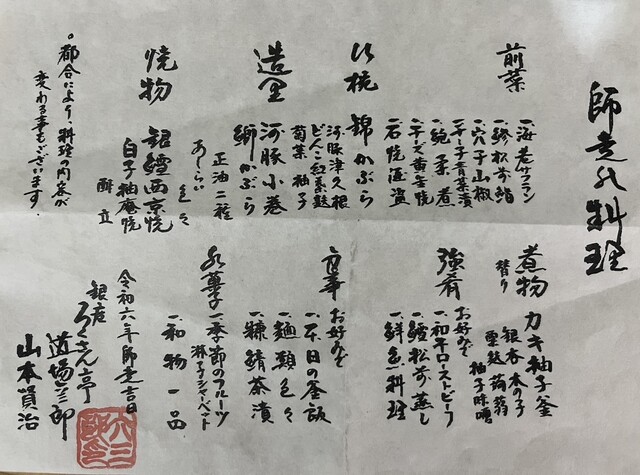 師走の料理
前菜
一、海老サフラン
一、鯵松前鮨
一、穴子山椒
一、干子青菜漬
一、鮑柔煮
一、干支黄金焼
一、石焼
錦かぶら
河豚津久根
どんこ 紅葉麩
菊菜 柚子
造里
河豚小巻
鰤かぶら
正油二種
あしらい 色々
焼物
銀鱈西京焼
白子柚庵焼
酢立
。都合により、料理の内容が
変わる事もございます。
煮物
替り
カキ柚子釜
銀杏 木の子
粟麩 蒟蒻
柚子味噌
強肴
お好みで
一、和牛ローストビーフ
一、鱈松前蒸し
一、鮮魚料理
食事
お好みで
一、本日の釜飯
一、麺類色々
一、糠鯖茶漬
水菓子
一、季節のフルーツ
シャーベット
一、和物一品
令和六年師走吉日
銀座
ろくさん亭
道場六三郎
山本賢治